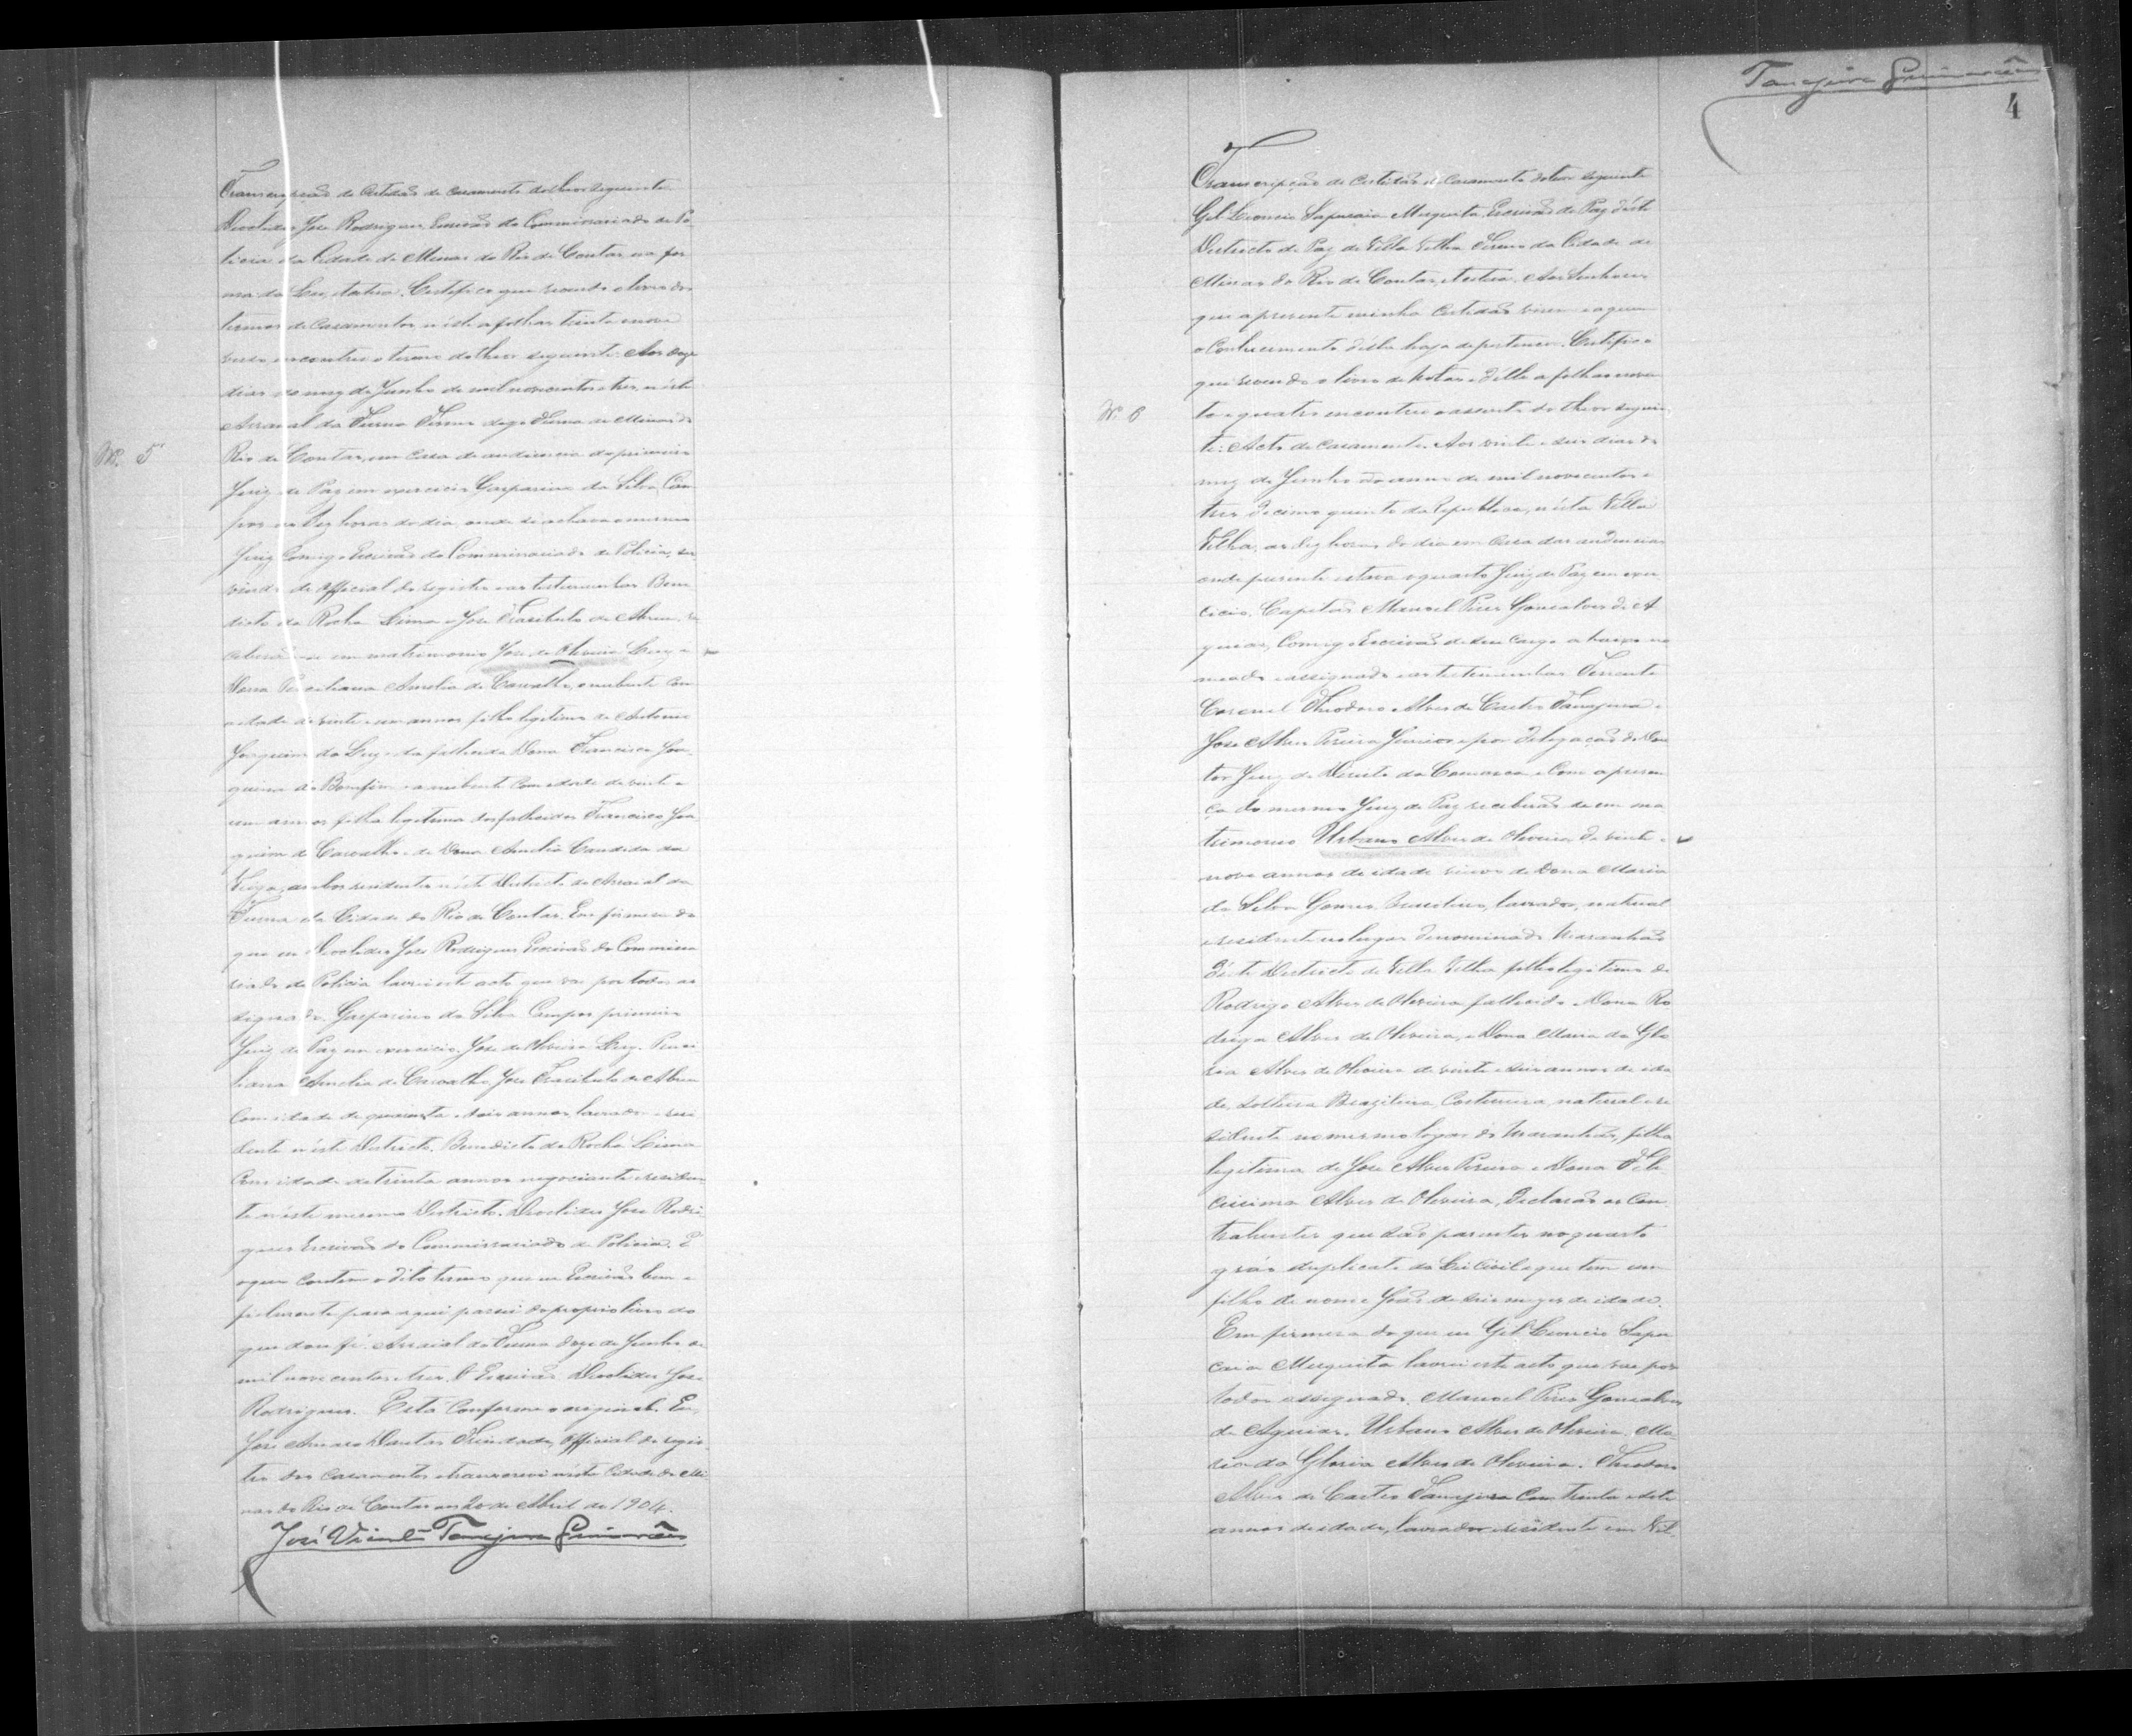 Transcripção de Certidão de Casamento do theor seguinte
Deoclides José Rodrigues Escrivão do Commissariado de Po-
licia da Cidade de Minas do Rio de Contas na for
ma da Lei, etcetera. Certifico que revendo o livro dos
termos de Casamentos n'este a folhas trinta e nove
verso encontrei o termo do theor seguinte: Aos doze
dias do mez de Junho de mil novecentos e tres, n'este
Arraial da Furna Termo de Minas do
Nº. 5
Rio de Contas, em Casa de audiencia do primeiro
Juiz de Paz em exercicio Gasparino da Silva Cam
pos as dez horas do dia, onde se achava o mesmo
Juiz Comigo Escrivão do Commissariado de Policia, ser
vindo de official do registro e as testemunhas Bene
dicto da Rocha Lima e José Trasibulo de Abreu, re
ceberão-se em matrimonio José de Oliveira Luz e
Dona Amelia de Carvalho, o nubente com
a idade de vinte e um annos filho legitimo de Antonio
Joaquim da Luz e da fallecida Dona Francisca Joa
quina do Bomfim e a nubente Com idade de vinte e
um annos filha legitima dos fallecidos Francisco Joa
quim de Carvalho e de Dona Amelia Candida da
ambos residentes n'este Districto do Arraial da
Furna da Cidade do Rio de Contas. Em firmeza do
que eu Deoclides José Rodrigues Escrivão do Commissa
riado de Policia lavrei este acto que vae por todos as
signado. Gasparino da Silva Campos primeiro
Juiz de Paz em exercicio. José de Oliveira Luz.
Amelia de Carvalho, José Trasibulo de Abreu
Com idade de quarenta e annos, lavrador e resi
dente n'este Districto. Benedicto da Rocha Lima
Com idade de trinta annos negociante e residen
te n'este mesmo Districto. Deoclides José Rodri
gues Escrivão do Commissariado de Policia. E
o que Continha o dito termo que eu Escrivão bem e
fielmente para aqui passei do proprio livro do
que dou fé. Arraial da Furna doze de Junho de
mil novecentos e tres. O Escrivão Deoclides José
Rodrigues. Está Conforme o original. Eu,
José Amaro Dantas Trindade, Official do regis-
tro dos Casamentos o transcrevi n'esta Cidade de Mi
nas do Rio de Contas em 20 de Abril de 1904.
José Vicente Tanajura Guimarães
Tanajura Guimarães
4
Transcripção de Certidão de Casamento do theor seguinte
Gil Leoncio Sapucaia Mesquita, Escrivão de Paz d'este
Districto de Paz de Villa Velha Termo da Cidade de
Minas do Rio de Contas, etcetera. Aos Senhores
que a presente minha Certidão virem e a quem
o Conhecimento desta haja de pertencer. Certifico
que revendo o livro de Notas, d'elle a folhas noven
Nº. 6
ta e quatro encontrei o assento do theor seguin
te: Acto de Casamento. Aos vinte e seis dias do
mez de Junho do anno de mil novecentos e
tres decimo quinto da Republica, n'esta Villa
Velha, as dez horas do dia em Casa das audiencias
onde presente estava o quarto Juiz de Paz em exer
cicio, Capitão Manoel Pires Gonsalves de A
guiar, Comigo Escrivão de seu Cargo abaixo no
meado e assignado e as testemunhas Tenente
Coronel Theodoro Alves de Castro Tanajura e
José Alves Pereira Junior e por delegação do Dou
tor Juiz de Direito da Comarca e Com a presen
ça do mesmo Juiz de Paz receberão-se em ma
trimonio Urbano Alves de Oliveira de vinte e
nove annos de idade viuvo de Dona Maria
da Silva Gomes, Brasileiro, lavrador, natural
e residente no lugar denominado Maranhão
d'este Districto de Villa Velha filho legitimo de
Rodrigo Alves de Oliveira fallecido e Dona Ro
driga Alves de Oliveira, e Dona Maria da Glo
ria Alves de Oliveira de vinte e seis annos de ida
de, solteira Brazileira, Costureira, natural e re
sidente no mesmo logar do Maranhão, filha
legitima de José Alves Pereira e Dona Feli
cissima Alves de Oliveira, Declarão os Con
trahentes que são parentes no quarto
gráo duplicado da Lei Civil e que tem um
filho de nome João de seis mezes de idade.
Em firmeza do que eu Gil Leoncio Sapu
caia Mesquita lavrei este acto que vae por
todos assignado. Manoel Pires Gonsalves
de Aguiar. Urbano Alves de Oliveira. Ma
ria da Gloria Alves de Oliveira. Theodoro
Alves de Castro Tanajura Com trinta e sete
annos de idade, lavrador residente em Vil-